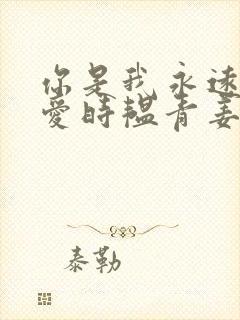 你是我永远
爱时韫青姜
泰勒